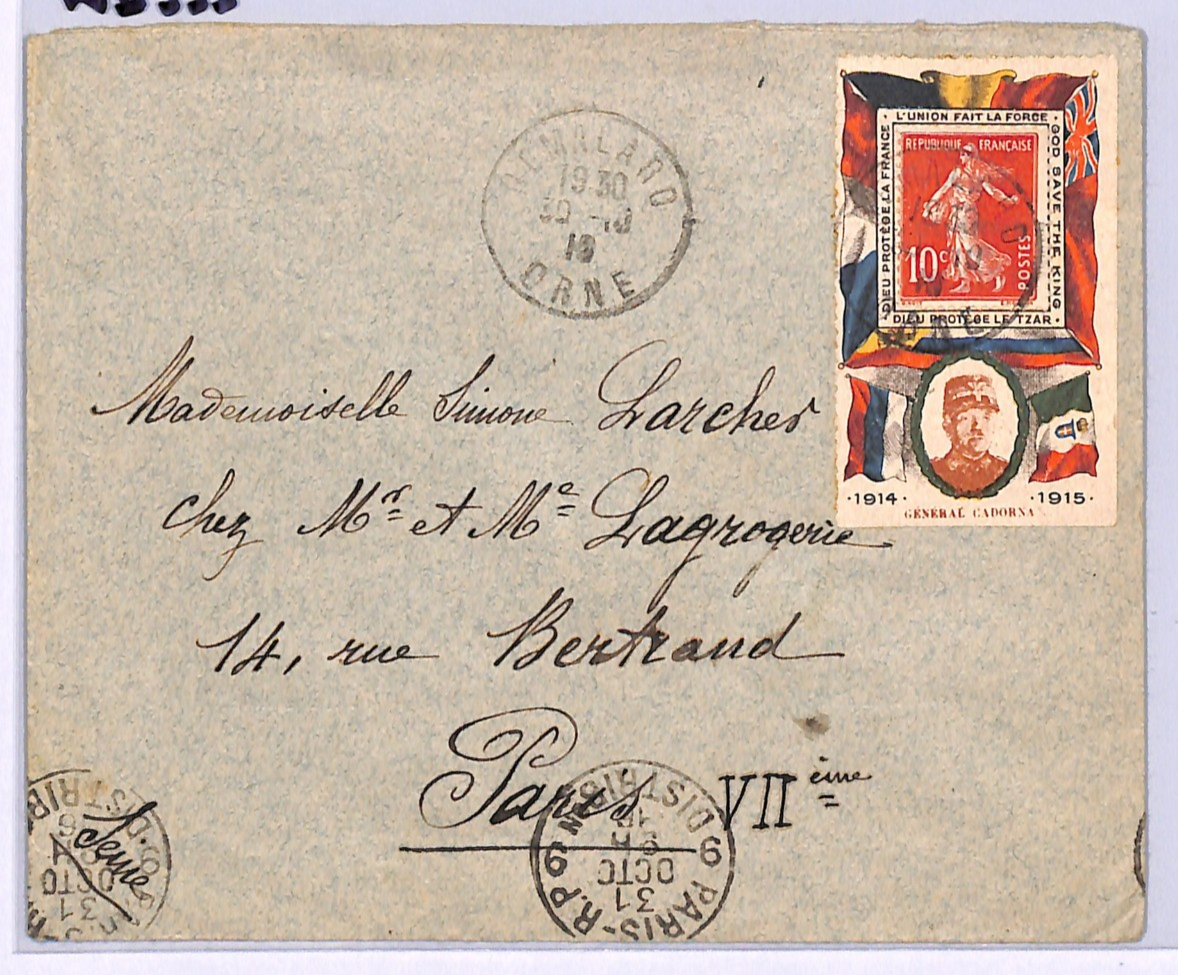 REMALARD
19 30
30 -10
ORNE
· L'UNION FAIT LA FORCE ·
GOD SAVE THE KING
DIEU PROTÈGE LA FRANCE
REPUBLIQUE FRANÇAISE
10c
POSTES
DIEU PROTÈGE LE TZAR ·
·1914· ·1915·
GÉNÉRAL CADORNA
Mademoiselle Simone Larcher
chez Mr et Me Lagrogerie
14, rue Bertrand
Paris VIIème
Seine
PARIS-R.P 6
31
OCTO
DISTRIB
31
OCTO
DISTRIB